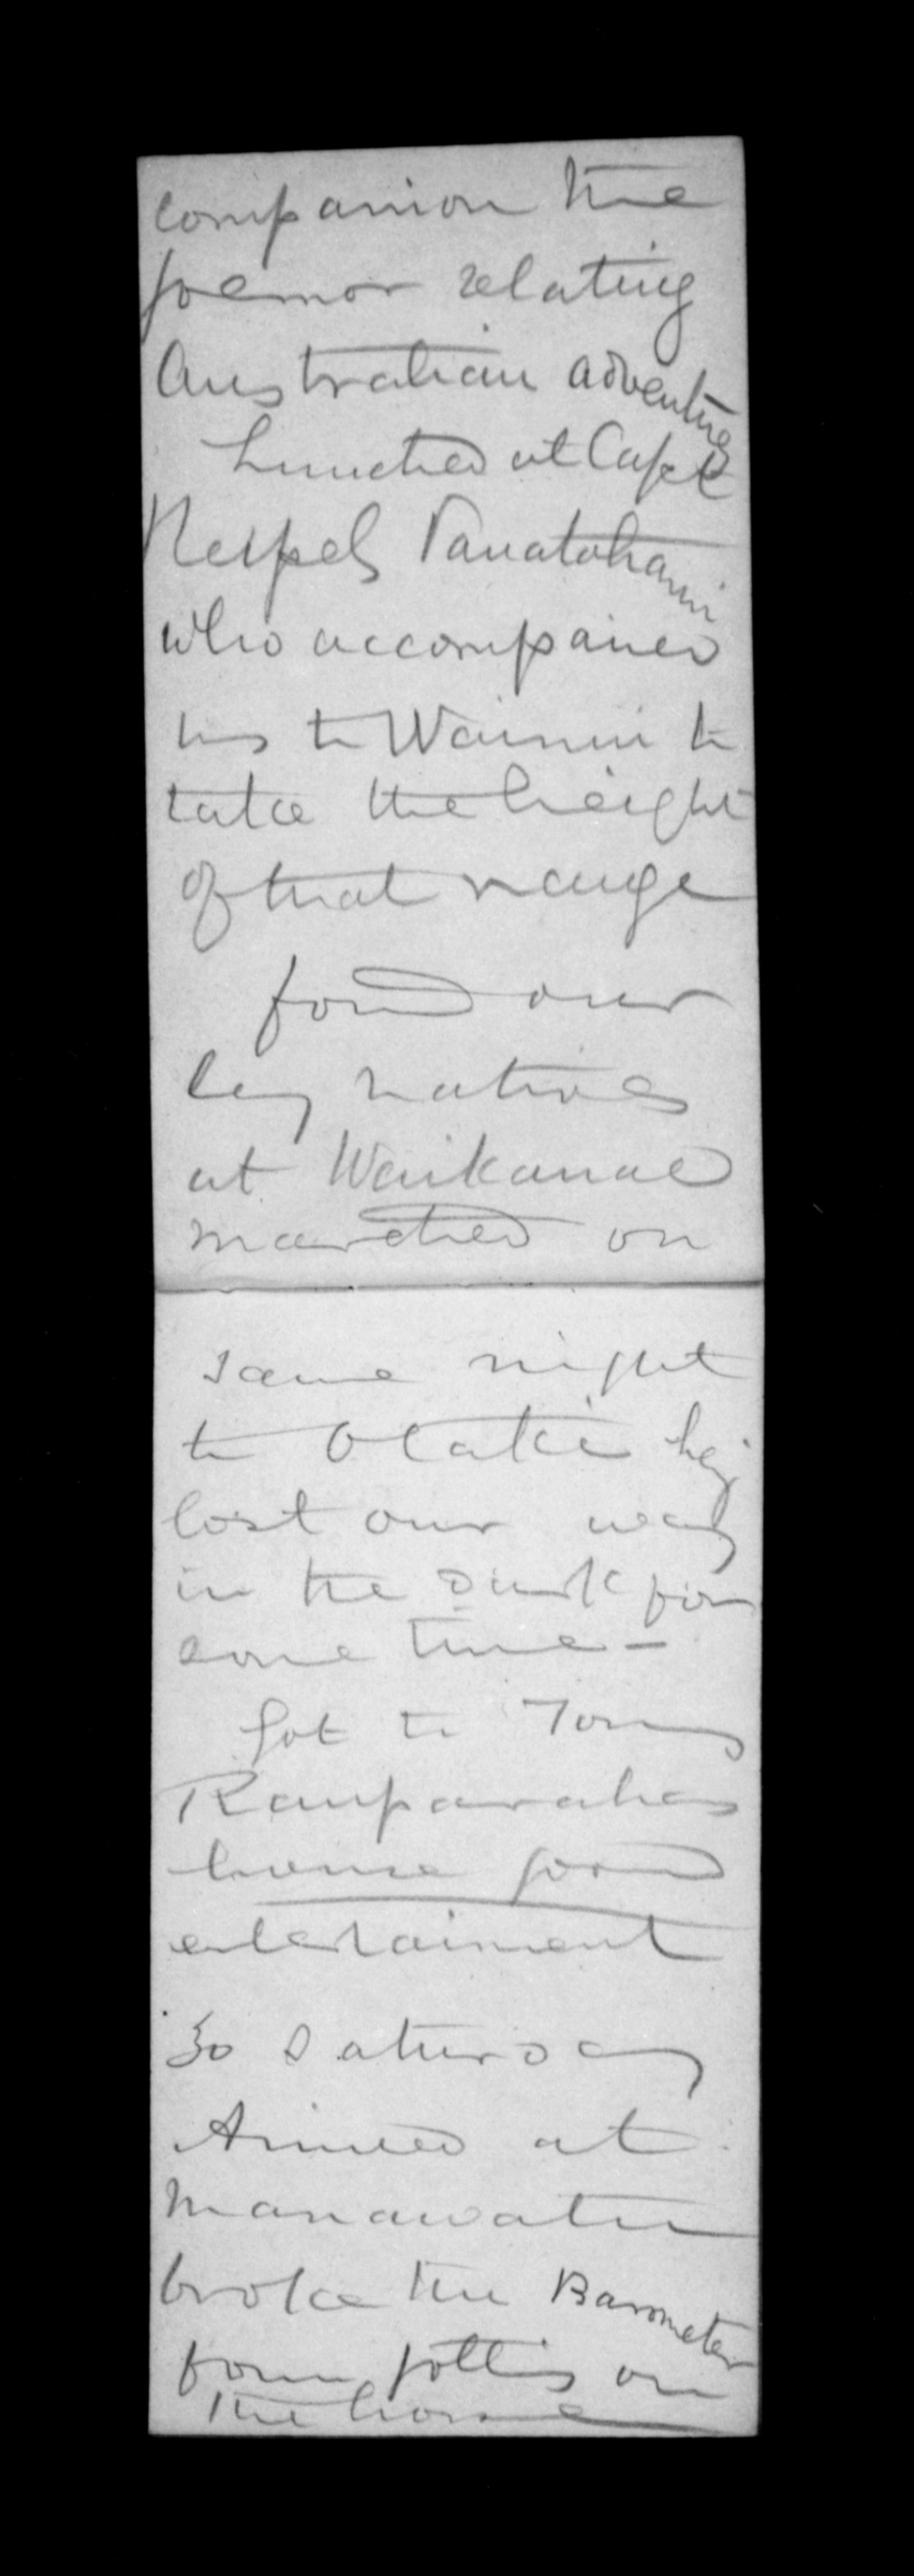 companion the
foemor relating
Australian adventures
Lunched at Capt
who accompained
us to Wainui to
take the height
of that range
found our
lazy natives
at Waikanae
marched on
same night
to Otaki hvg
lost our way
in the dark for
some time -
Got to Toms
Rauparahas
house good
entertaiment
30 Saturday
Arrived at
Manawatu
broke the Barometer
from jolting on
the horse